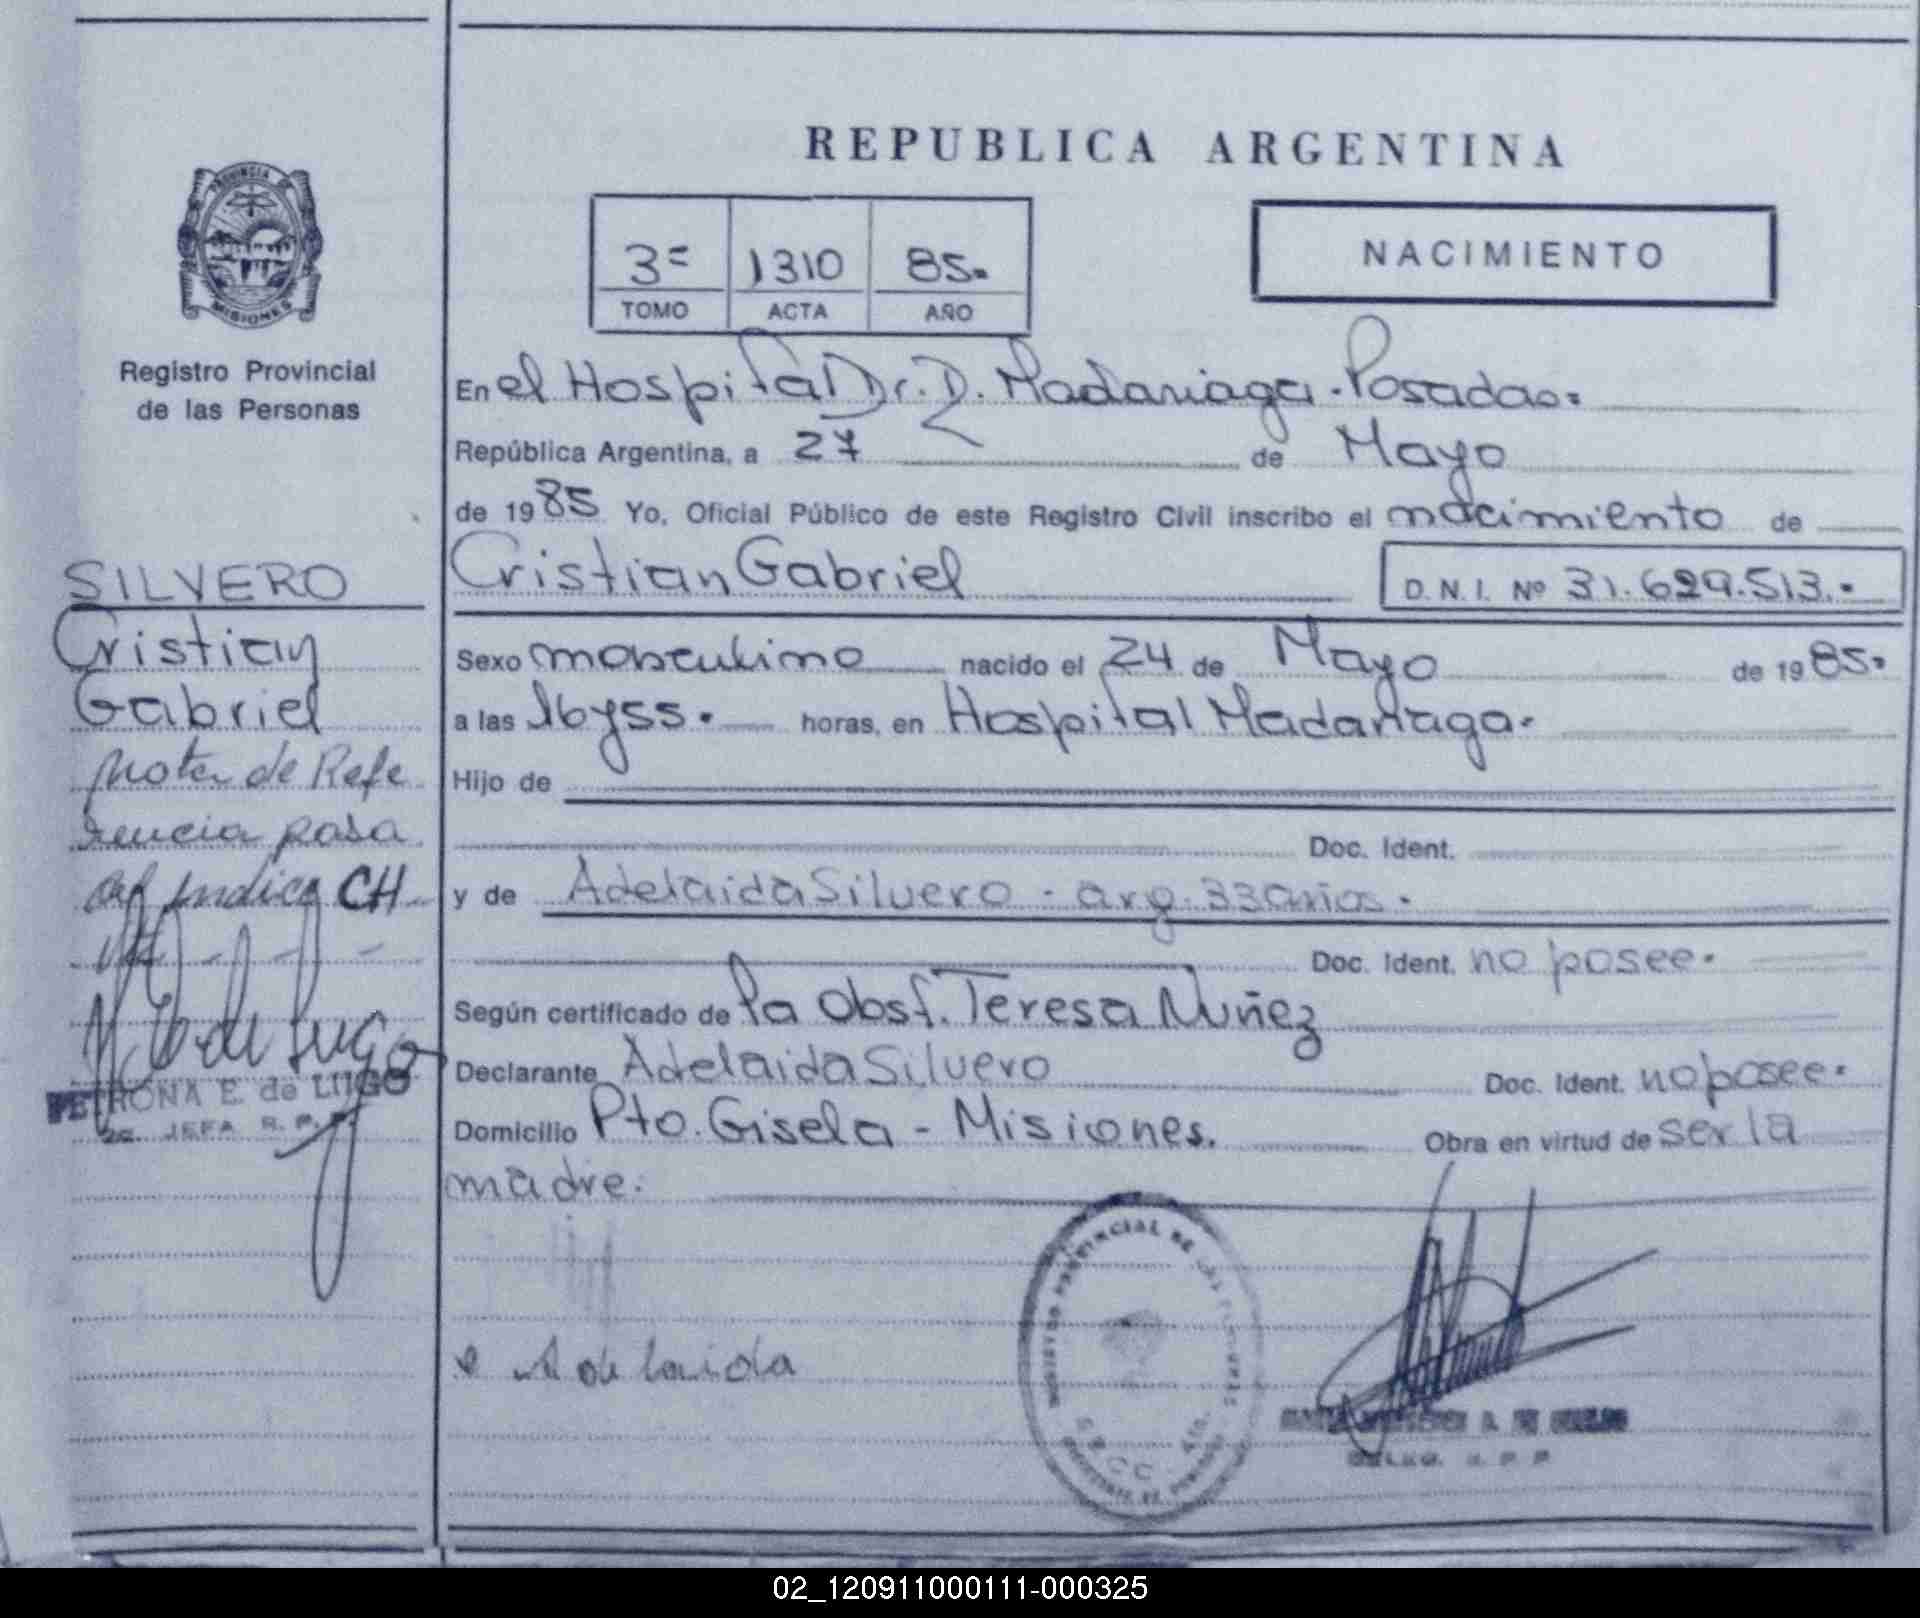 REPUBLICA ARGENTINA
PROVINCIA DE
MISIONES
Registro Provincial
de las Personas
3º 1310 85.
TOMO ACTA AÑO
NACIMIENTO
En el Hospital Dr. R. Madariaga. Posadas.
República Argentina, a 27 de Mayo
de 1985 Yo, Oficial Público de este Registro Civil inscribo el nacimiento de
Cristian Gabriel D. N. I. Nº 31.629.513.
Sexo masculino nacido el 24 de Mayo de 1985.
a las 16y55. horas, en Hospital Madariaga.
Hijo de
Doc. Ident.
y de Adelaida Silvero - arg. 33 años.
Doc. Ident. no posee.
Según certificado de la Obst. Teresa Nuñez
Declarante Adelaida Silvero Doc. Ident. no posee.
Domicilio Pto. Gisela - Misiones. Obra en virtud de ser la
madre.
Adelaida
SILVERO
Cristian
Gabriel
Nota de Refe
rencia pasa
al Indice CH
PETRONA E. de LUGO
JEFA R. P.
REGISTRO PROVINCIAL DE LAS PERSONAS
02_120911000111-000325